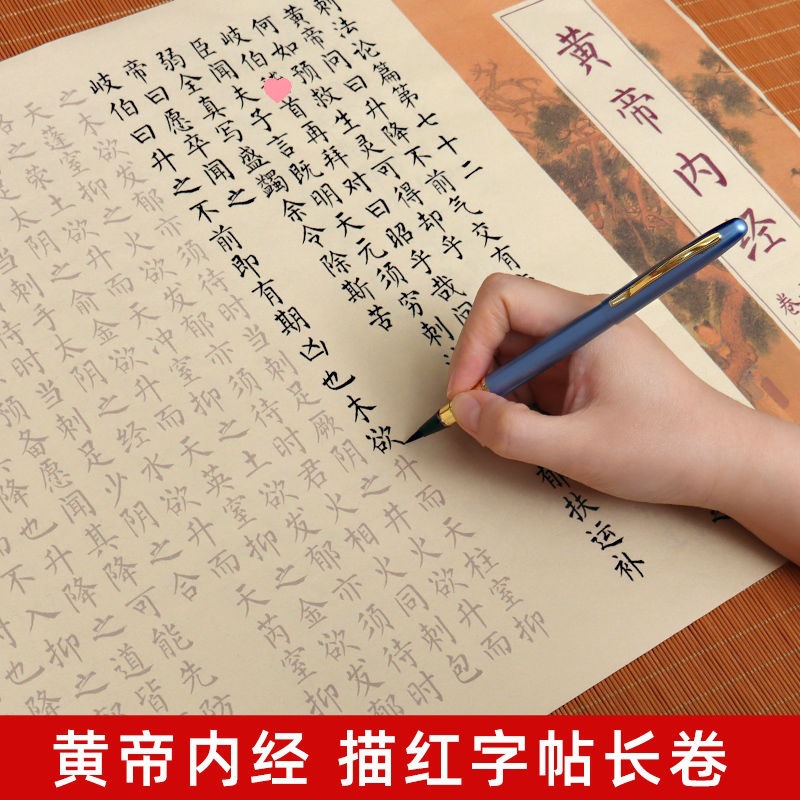 刺法论篇第七十二
黄帝问曰升降不前气交有
何如预救生灵可得却乎
岐伯首再拜对曰昭乎哉问
臣闻夫子言既明天元须穷刺 郁扶运补
弱全真写盛蠲余令除斯苦
帝曰愿卒闻之
岐伯曰升之不前即有期凶也木欲升而天柱室抑
之木欲发郁亦须待时当刺足厥阴之井火欲升而
天蓬室抑之火欲发郁亦须待时君火相火同刺包
络之荥土欲升而天冲室抑之土欲发郁亦须待时
足太阴之俞金欲升而天英室抑之金欲发郁
刺手太阴之经水欲升而天芮室抑
待时当刺足少阴之合
预备愿闻其降可能先防
黄帝内经
卷
黄帝内经 描红字帖长卷